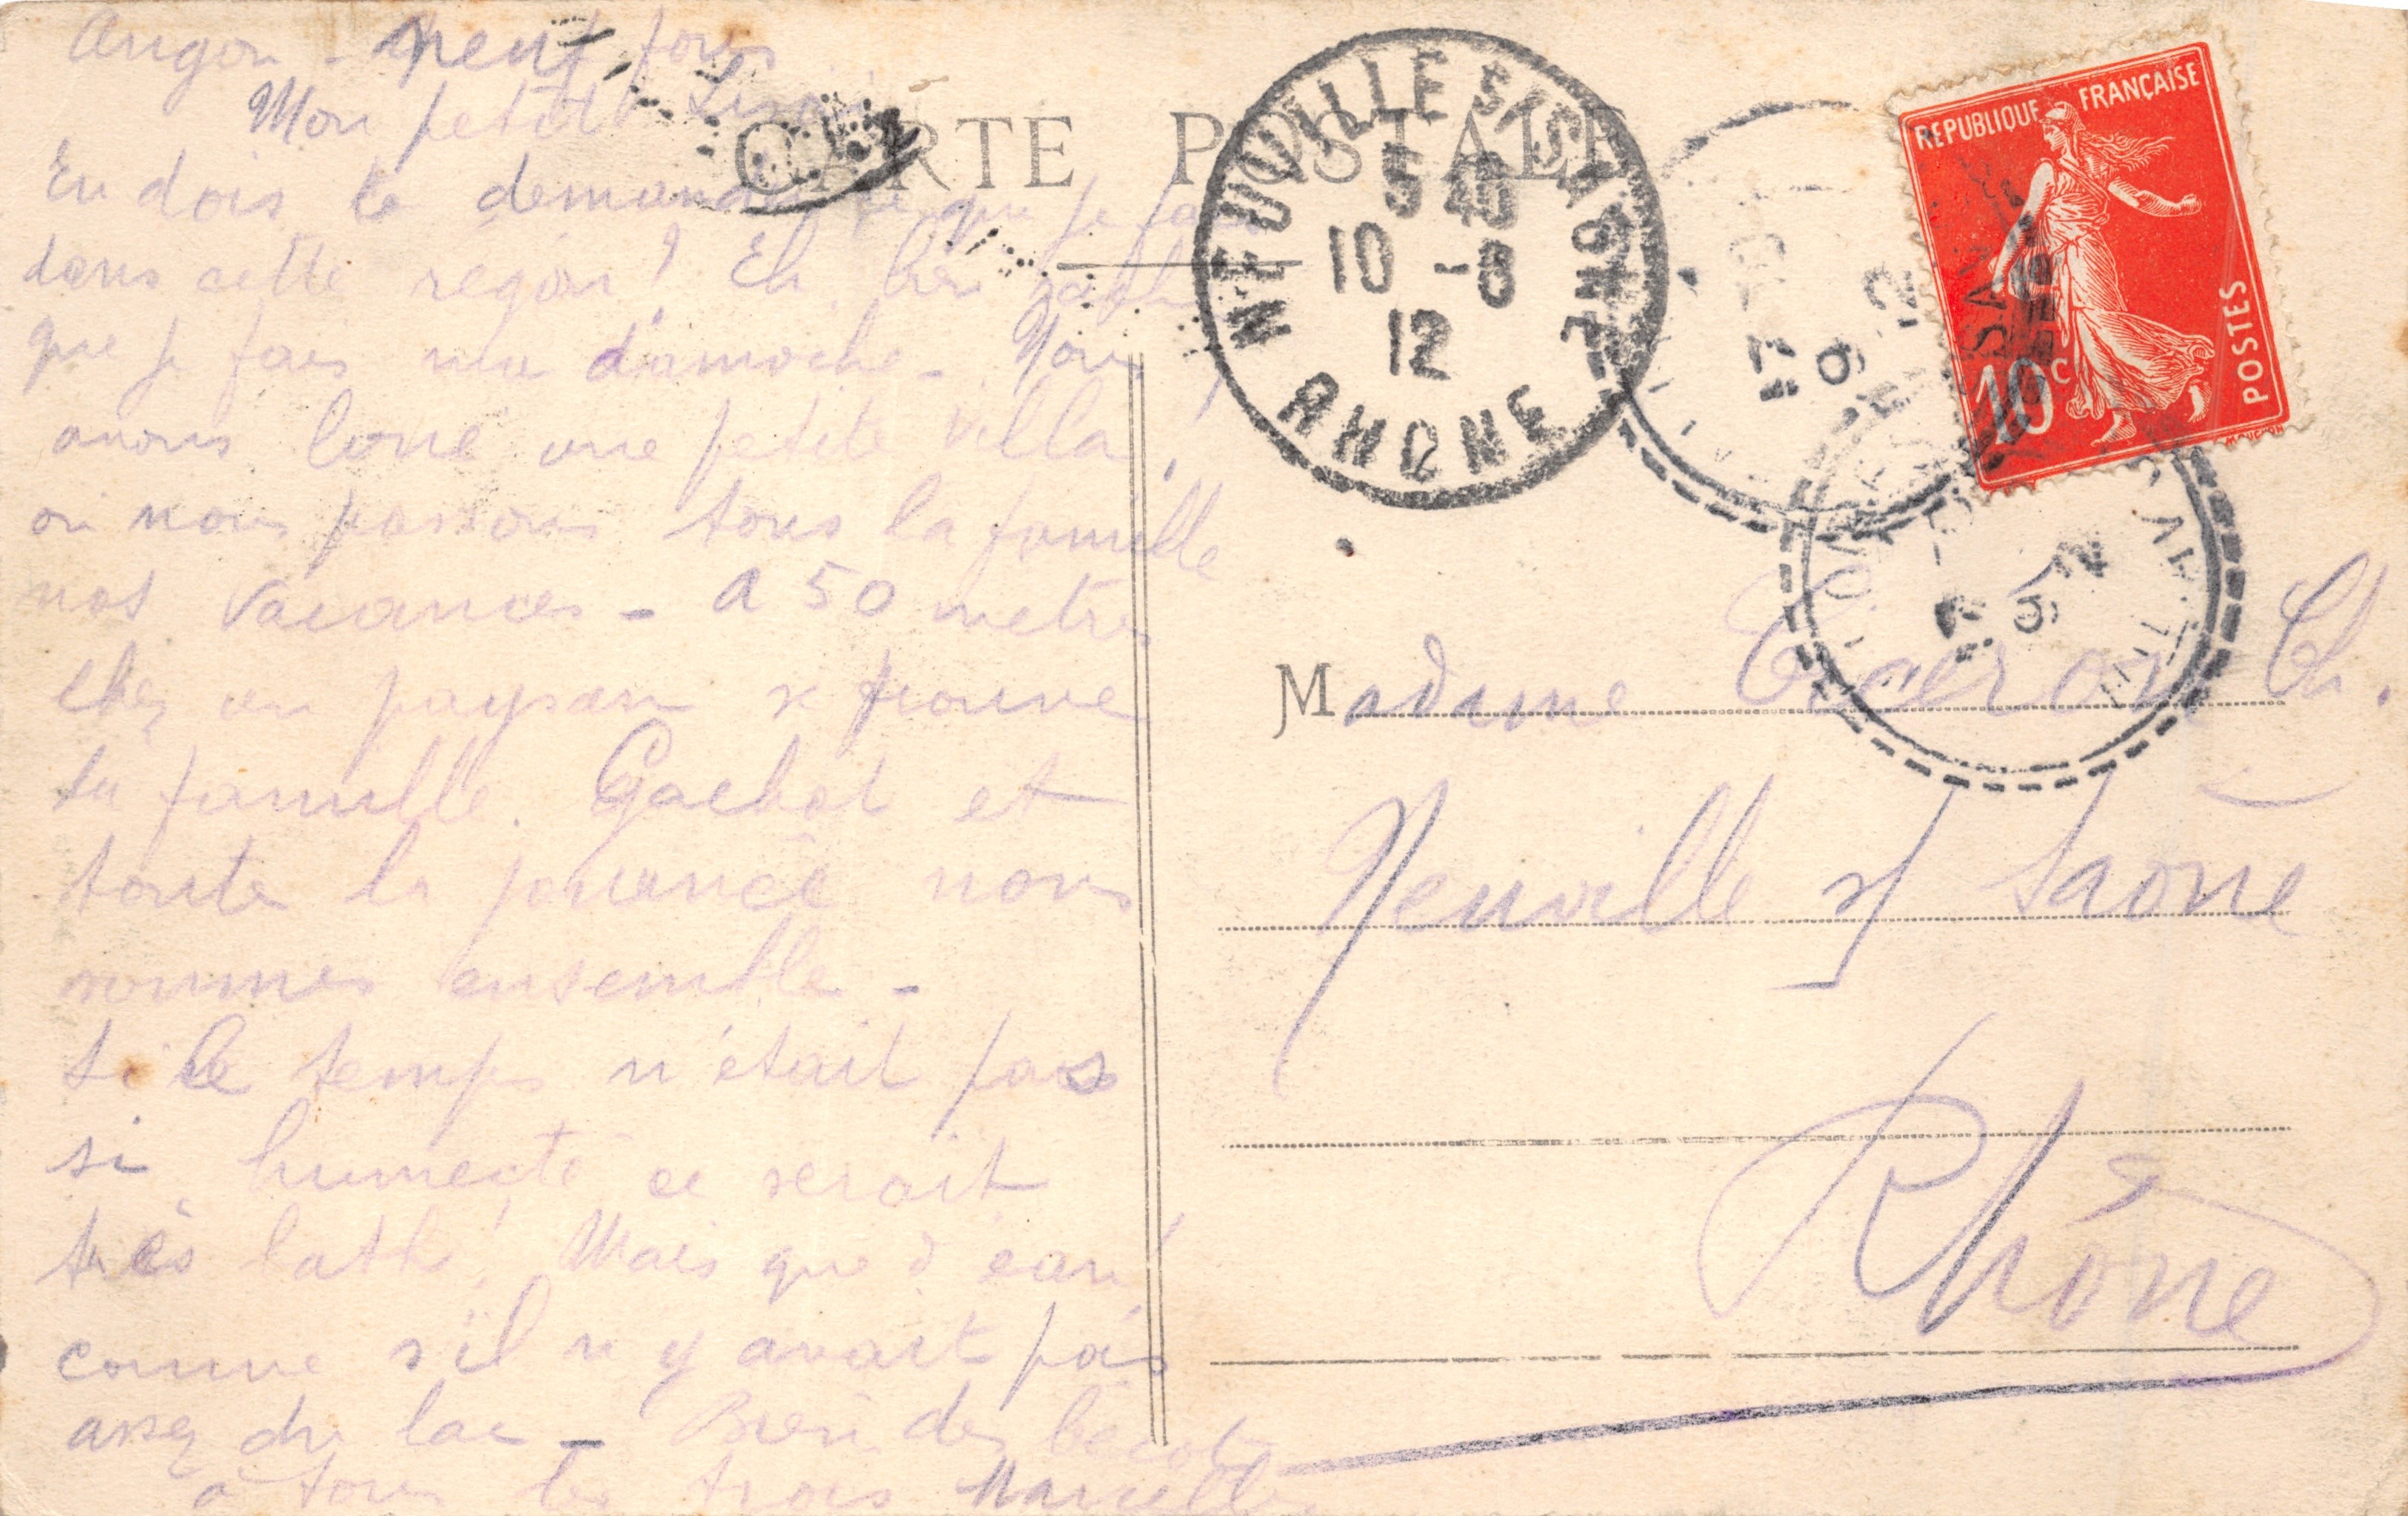 Angon - neuf jours
Mon petit
Tu dois te demander ce que je fais
dans cette région! Eh bien
que je fais ma . Nous
avons loué une petite villa!
ou nous passons tous la famille
nos vacances - a 50 metres
chez un paysan se trouve
la famille. Gachot et
toute la journée nous
sommes ensemble -
Si le temps n'était pas
si humecté ce serait
très bath! Mais que d'eau
comme s'il n'y avait pas
assez du lac - Bien des bécots
à tous les trois Marcelle
CARTE POSTALE
NEUVILLE S/SAONE
5 40
10 - 8
12
RHONE
17
9
12
REPUBLIQUE FRANÇAISE
POSTES
10c
MOUCHON
Madame Ch.
Neuville s/ Saône
Rhône